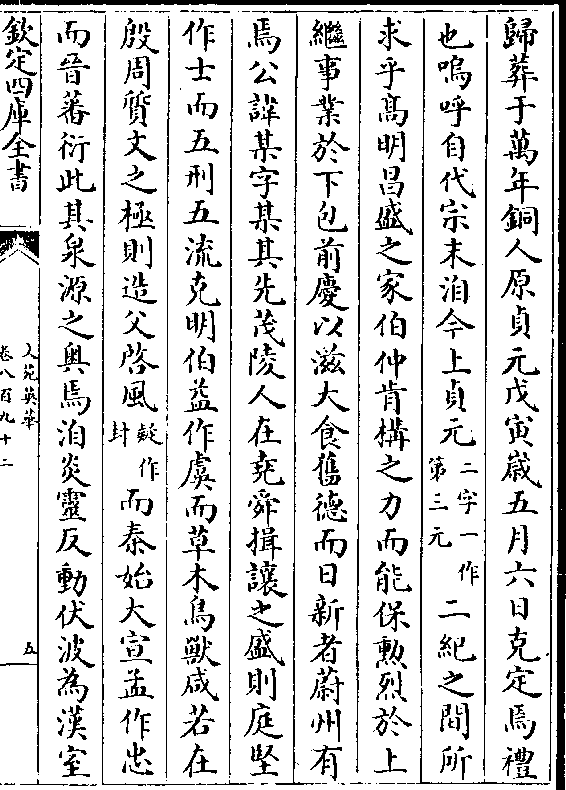 歸葬于萬年銅人原貞元戊寅嵗五月六日克定焉禮
也嗚呼自代宗末洎今上貞元二字一作第三元二紀之間所
求乎髙明昌盛之家伯仲肯構之力而能保勲烈於上
繼事業於下包前慶以滋大食舊德而日新者蔚州有
焉公諱某字某其先茂陵人在堯舜揖讓之盛則庭堅
作士而五刑五流克明伯益作虞而草木鳥獸咸若在
殷周質文之極則造父啓風疑作封而秦始大宣孟作忠
而晉蕃衍此其泉源之奥焉洎炎靈反動伏波為漢室
欽定四庫全書
文苑英華
卷八百九十二
五